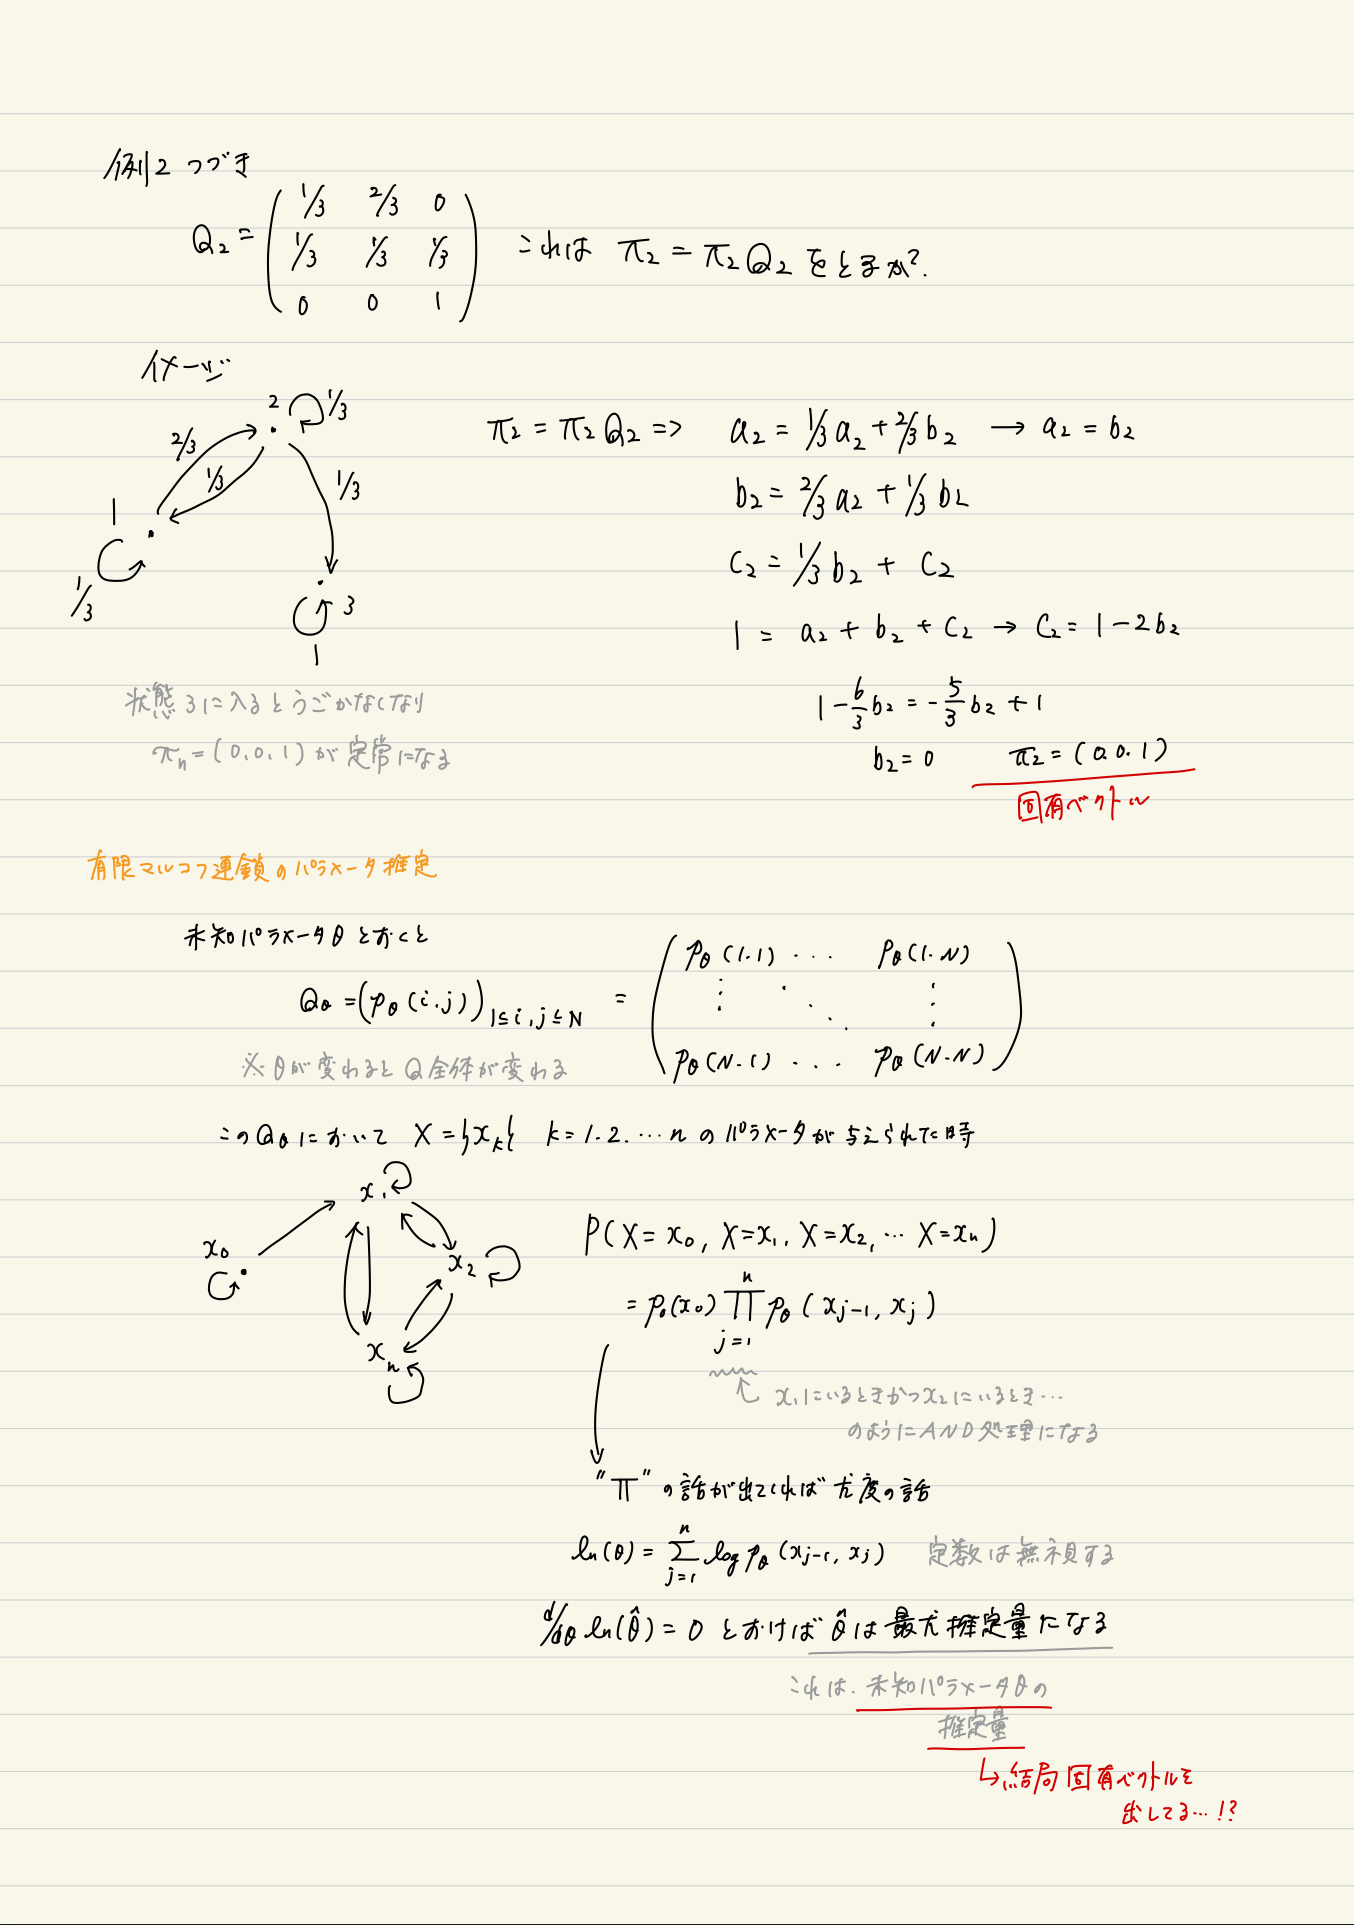 例2 つづき
Q₂ = ( 1/3 2/3 0
1/3 1/3 1/3
0 0 1 ) これは π₂ = π₂Q₂ をとるか?
イメージ
2 1/3
2/3 1/3 1/3
1
1/3
3
1
状態3に入るとうごかなくなり
πn = (0.0.1) が定常になる
π₂ = π₂Q₂ => a₂ = 1/3 a₂ + 2/3 b₂ → a₂ = b₂
b₂ = 2/3 a₂ + 1/3 b₂
c₂ = 1/3 b₂ + c₂
1 = a₂ + b₂ + c₂ → c₂ = 1 - 2b₂
1 - 6/3 b₂ = - 5/3 b₂ + 1
b₂ = 0 π₂ = (0.0.1)
固有ベクトル
有限マルコフ連鎖のパラメータ推定
未知パラメータθとおくと
Qθ = (pθ(i.j))1≤i,j≤N = ( pθ(1.1) ... pθ(1.N)
⋮ ⋱ ⋮
pθ(N.1) ... pθ(N.N) )
※θが変わるとQ全体が変わる
このQθにおいて X = {xk} k = 1.2. … n のパラメータが与えられた時
x₀ x₁ x₂ xn
P(X = x₀, X = x₁, X = x₂, … X = xn)
= p₀(x₀) ∏ⁿj=1 pθ(xj-1, xj)
x₁にいるときかつx₂にいるとき…
のようにAND処理になる
"∏"の話が出てくれば尤度の話
ln(θ) = Σⁿj=1 log pθ(xj-1, xj) 定数は無視する
d/dθ ln(θ̂) = 0 とおけば θ̂は最尤推定量になる
これは. 未知パラメータθの
推定量
↳結局固有ベクトルを
出してる…!?